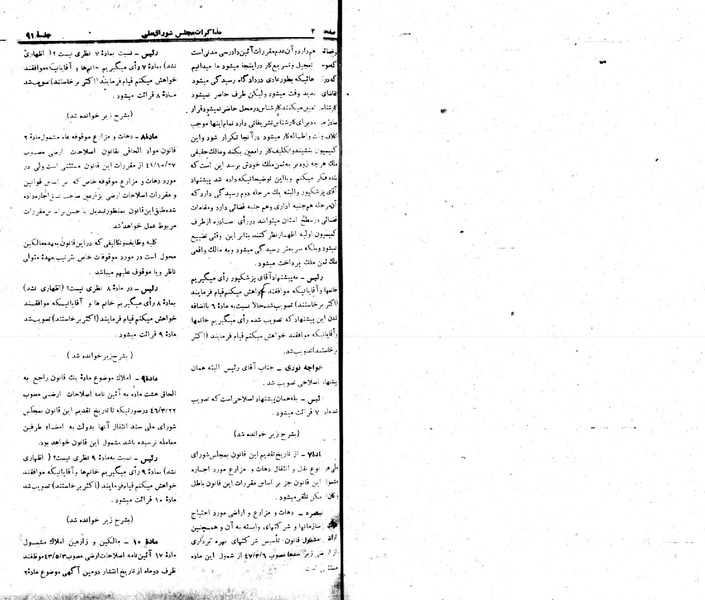 صفحه ۲
مذاکرات مجلس شورای ملی
جلسهٔ ۹۱
هم دارد و آن عدم مقررات آئین دادرسی مدنی است
تعجیل و تسریع کار در اینجا میشود ما میدانیم
هائیکه بطور عادی در دادگاه رسیدگی می شود
تجدید وقت میشود ولیکن طرف حاضر نمیشود
تعیین میکنند کارشناس در محل حاضر نمیشود قرار
برای کارشناس تشریفاتی دارد تمام اینها موجب
وقت و اطاله کار میشود در آنجا تکرار شود و این
کمیسیون بنشیند و تکلیف کار را معین بکند و مالک حقیقی
ملک هر چه زودتر به ثمن ملک خودش برسد این است که
بنده فکر میکنم و با این توضیحاتیکه داده شد پیشنهاد
آقای پزشکپور و البته یک مرحله دوم رسیدگی دارد که
آن مرحله هم جنبه اداری و هم جنبه قضائی دارد و مقامات
قضائی در سطح استان میتوانند در رأی صادره از طرف
کمیسیون اولیه اظهار نظر کنند بنابر این وقتی تضییع
نمیشود و بلکه سریعتر رسیدگی میشود و به مالک واقعی
ملک ثمن ملک پرداخت میشود.
رئیس – به پیشنهاد آقای پزشکپور رأی میگیریم
خانمها و آقایانیکه موافقند خواهش میکنم قیام فرمایند
(اکثر برخاستند) تصویب شد حالا نسبت به مادهٔ ۶ با اضافه
شدن این پیشنهاد که تصویب شده رأی میگیریم خانمها
و آقایانیکه موافقند خواهش میکنم قیام فرمایند (اکثر
برخاستند) تصویب شد.
خواجه نوری – جناب آقای رئیس البته همان
پیشنهاد اصلاحی تصویب شد.
رئیس – بله همان پیشنهاد اصلاحی است که تصویب
شد ماده ۷ قرائت میشود.
(بشرح زیر خوانده شد)
ماده ۷ – از تاریخ تقدیم این قانون بمجلس شورای
ملی هر نوع نقل و انتقال دهات و مزارع مورد اجاره
مشمول این قانون جز بر اساس مقررات این قانون باطل
تلقی میشود.
تبصره – دهات و مزارع و اراضی مورد احتیاج
سازمانها و شرکتهای وابسته به آن و همچنین
مشمول قانون تأسیس شرکتهای بهره برداری
از اراضی زیر سدها مصوب ۴۷/۳/۶ از شمول این ماده
مستثنی است
رئیس – نسبت به مادهٔ ۷ نظری نیست؟ (اظهاری
نشد) مادهٔ ۷ رأی میگیریم خانم‌ها و آقایانیکه موافقند
خواهش میکنم قیام فرمایند (اکثر برخاستند) تصویب شد
مادهٔ ۸ قرائت میشود.
(بشرح زیر خوانده شد)
ماده ۸ – دهات و مزارع موقوفه عام مشمول مادهٔ ۲
قانون مواد الحاقی بقانون اصلاحات ارضی مصوب
۴۱/۱۰/۲۷ از مقررات این قانون مستثنی است ولی در
مورد دهات و مزارع موقوفه خاص که بر اساس قوانین
و مقررات اصلاحات ارضی بزارعین صاحب نسق اجاره داده
شده طبق این قانون بمنظور تبدیل به احسن برابر مقررات
مربوط عمل خواهد شد.
کلیه وظایف و تکالیفی که در این قانون بعهده مالکین
محول است در مورد موقوفات خاص بترتیب بعهدهٔ متولی
ناظر و یا موقوف علیهم میباشد.
رئیس – در مادهٔ ۸ نظری نیست؟ (اظهاری نشد)
بمادهٔ ۸ رأی میگیریم خانم‌ها و آقایانیکه موافقند
خواهش میکنم قیام فرمایند (اکثر برخاستند) تصویب شد
مادهٔ ۹ قرائت میشود.
(بشرح زیر خوانده شد)
ماده ۹ – املاک موضوع مادهٔ یک قانون راجع به
الحاق هشت ماده به آئین نامه اصلاحات ارضی مصوب
۴۶/۳/۲۲ در صورتیکه تا تاریخ تقدیم این قانون بمجلس
شورای ملی سند انتقال آنها بدولت به امضاء طرفین
معامله نرسیده باشد مشمول این قانون خواهد بود.
رئیس – نسبت به مادهٔ ۹ نظری نیست؟ (اظهاری
نشد) بمادهٔ ۹ رأی میگیریم خانم‌ها و آقایانیکه موافقند
خواهش میکنم قیام فرمایند (اکثر برخاستند) تصویب شد
مادهٔ ۱۰ قرائت میشود.
(بشرح زیر خوانده شد)
ماده ۱۰ – مالکین و زارعین املاک مشمول
مادهٔ ۱۷ آئین نامه اصلاحات ارضی مصوب ۴۳/۵/۳ موظفند
ظرف دو ماه از تاریخ انتشار دومین آگهی موضوع مادهٔ ۲